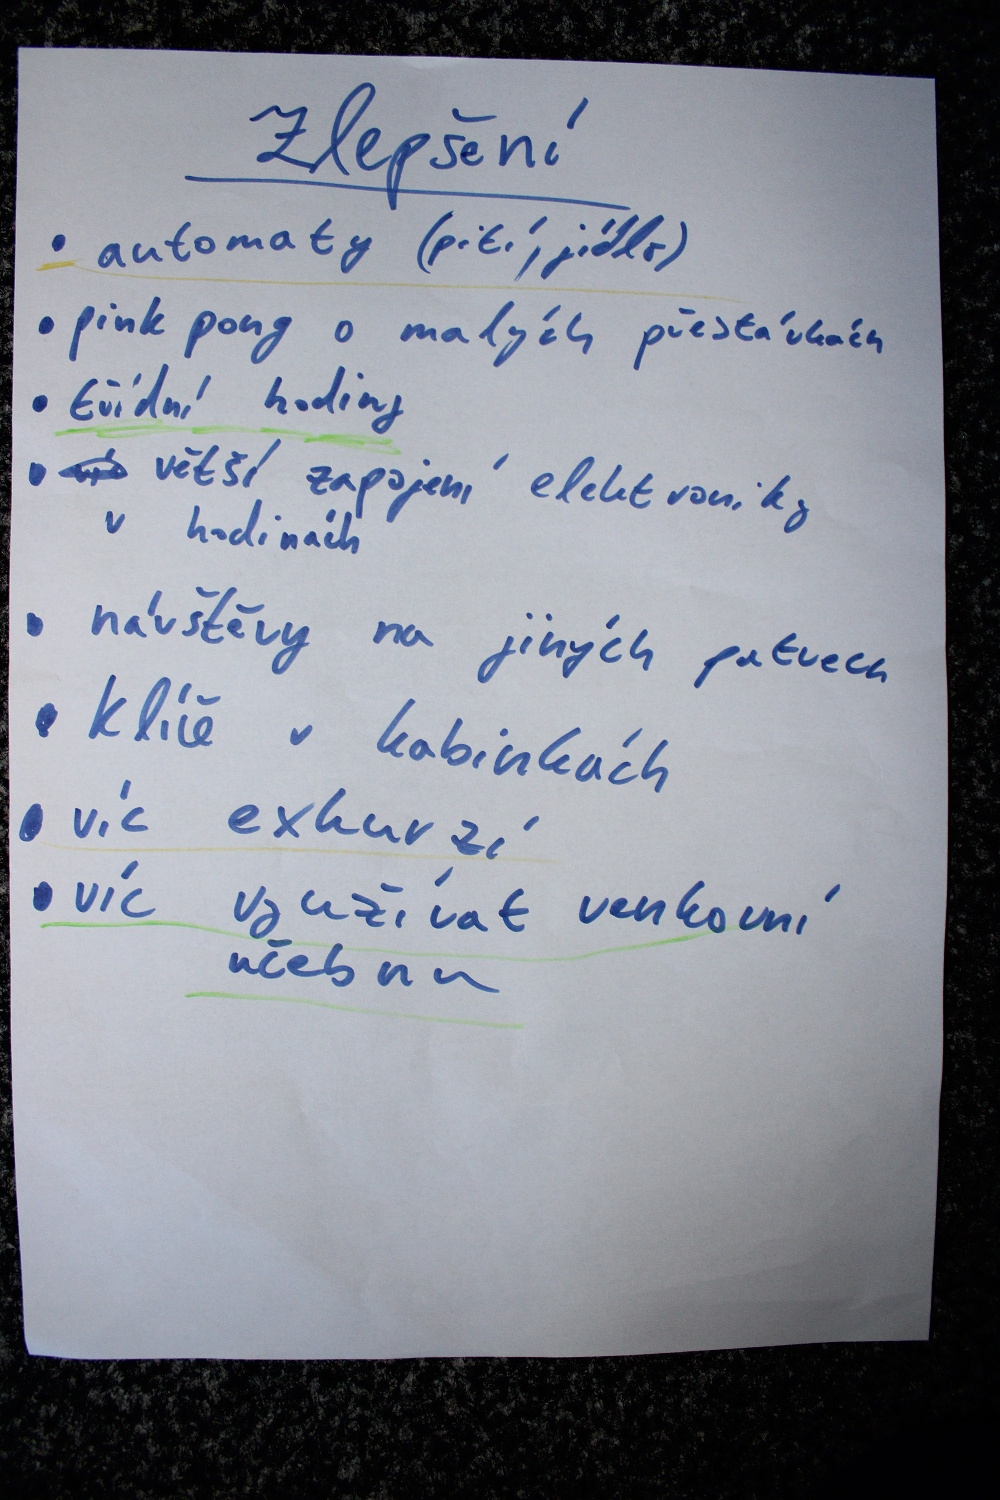 Zlepšení
• automaty (pití, jídlo)
• pink pong o malých přestávkách
• třídní hodiny
• větší zapojení elektroniky
v hodinách
• návštěvy na jiných patrech
• klíče v kabinkách
• víc exkurzí
• víc využívat venkovní
učebnu